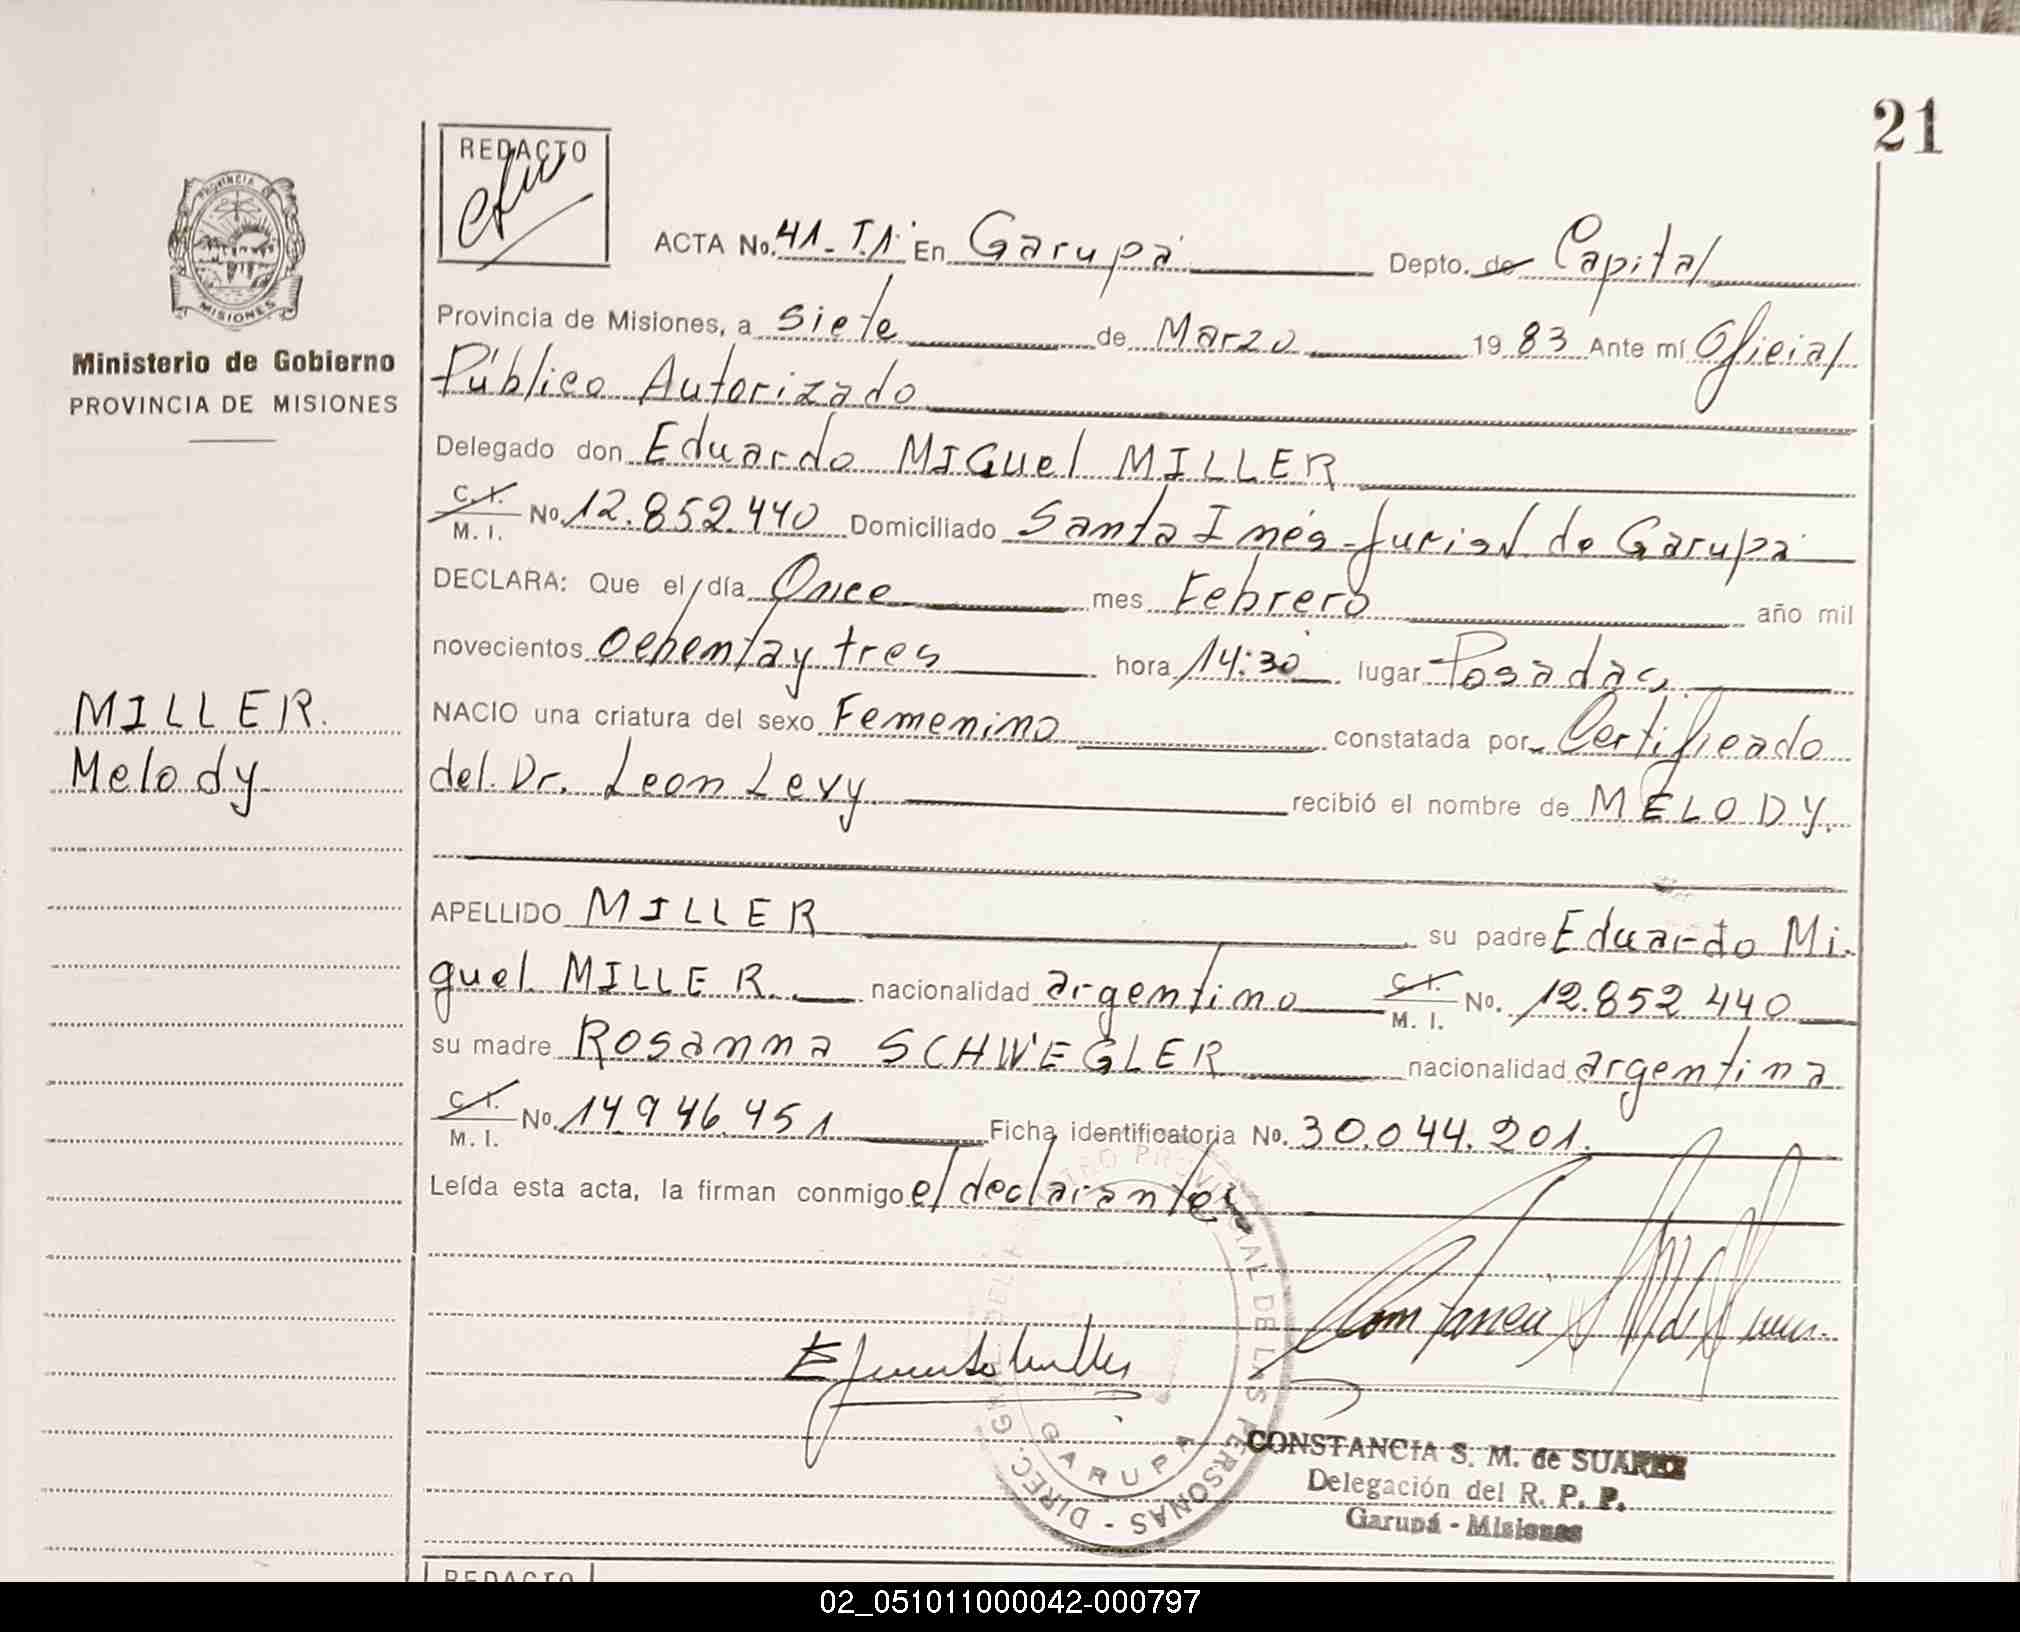 21
REDACTO
PROVINCIA DE
MISIONES
Ministerio de Gobierno
PROVINCIA DE MISIONES
MILLER.
Melody
ACTA No. 41-T.1: En Garupá Depto. de Capital
Provincia de Misiones, a Siete de Marzo 1983 Ante mí Oficial
Público Autorizado
Delegado don Eduardo MIGuel MILLER
C. I. / M. I. No. 12.852.440 Domiciliado Santa Inés-Juris/ de Garupá
DECLARA: Que el día Once mes Febrero año mil
novecientos Ochenta y tres hora 14:30 lugar Posadas
NACIO una criatura del sexo Femenino constatada por Certificado
del Dr. Leon Levy recibió el nombre de MELODY.
APELLIDO MILLER su padre Eduardo Mi-
guel MILLER. nacionalidad argentino C. I. / M. I. No. 12.852.440
su madre Rosanna SCHWEGLER nacionalidad argentina
C. I. / M. I. No. 14.946.451 Ficha identificatoria No. 30.044.201.
Leída esta acta, la firman conmigo el declarante
PROVINCIAL DE LAS PERSONAS - DIREC. GRAL. DEL
GARUPA
CONSTANCIA S. M. de SUAREZ
Delegación del R. P. P.
Garupá - Misiones
REDACTO
02_051011000042-000797